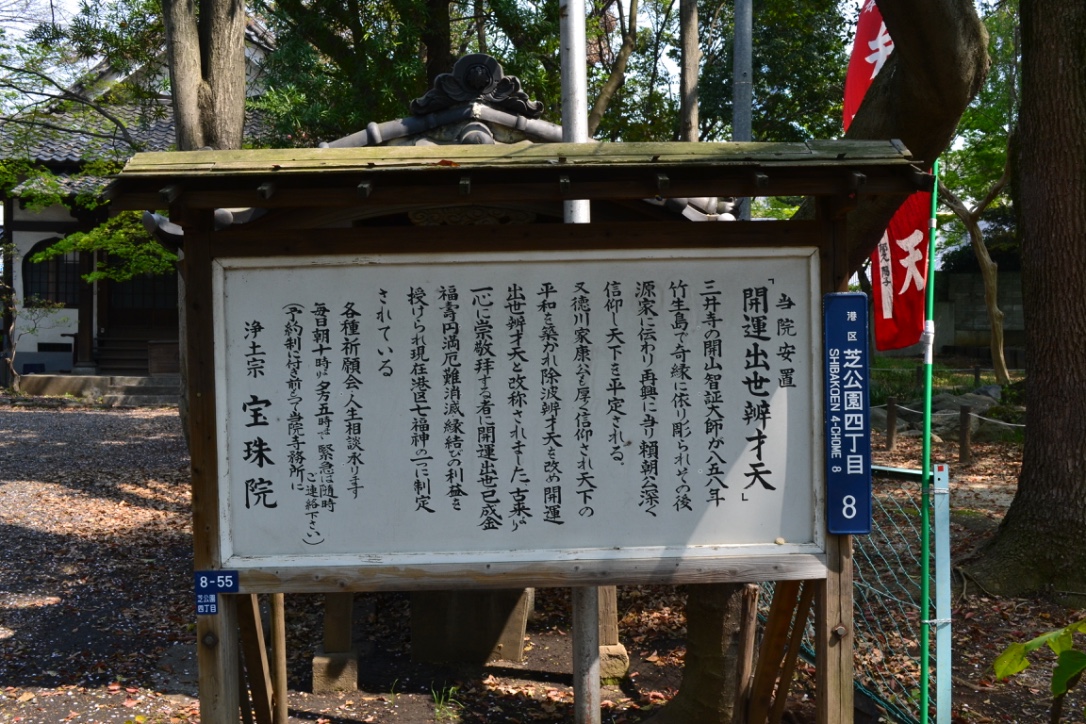 当院安置
「開運出世辨才天」
三井寺の開山智証大師が八五八年
竹生島で奇縁に依り彫られその後
源家に伝わり再興に当り頼朝公深く
信仰し天下を平定される。
又徳川家康公も厚く信仰され天下の
平和を築かれ除波辨才天を改め開運
出世辨才天と改称されました。古来より
一心に崇敬拝する者に開運出世巳成金
福寿円満厄難消滅縁結びの利益を
授けられ現在港区七福神の一に制定
されている
各種祈願会・人生相談承ります
毎日朝十時より夕方五時まで 緊急は随時
(予約制に付き前もって当院寺務所に
ご連絡下さい)
浄土宗 宝珠院
港区 芝公園四丁目 8
SHIBAKOEN 4-CHOME 8
8-55
芝公園
四丁目
天
天
陽子